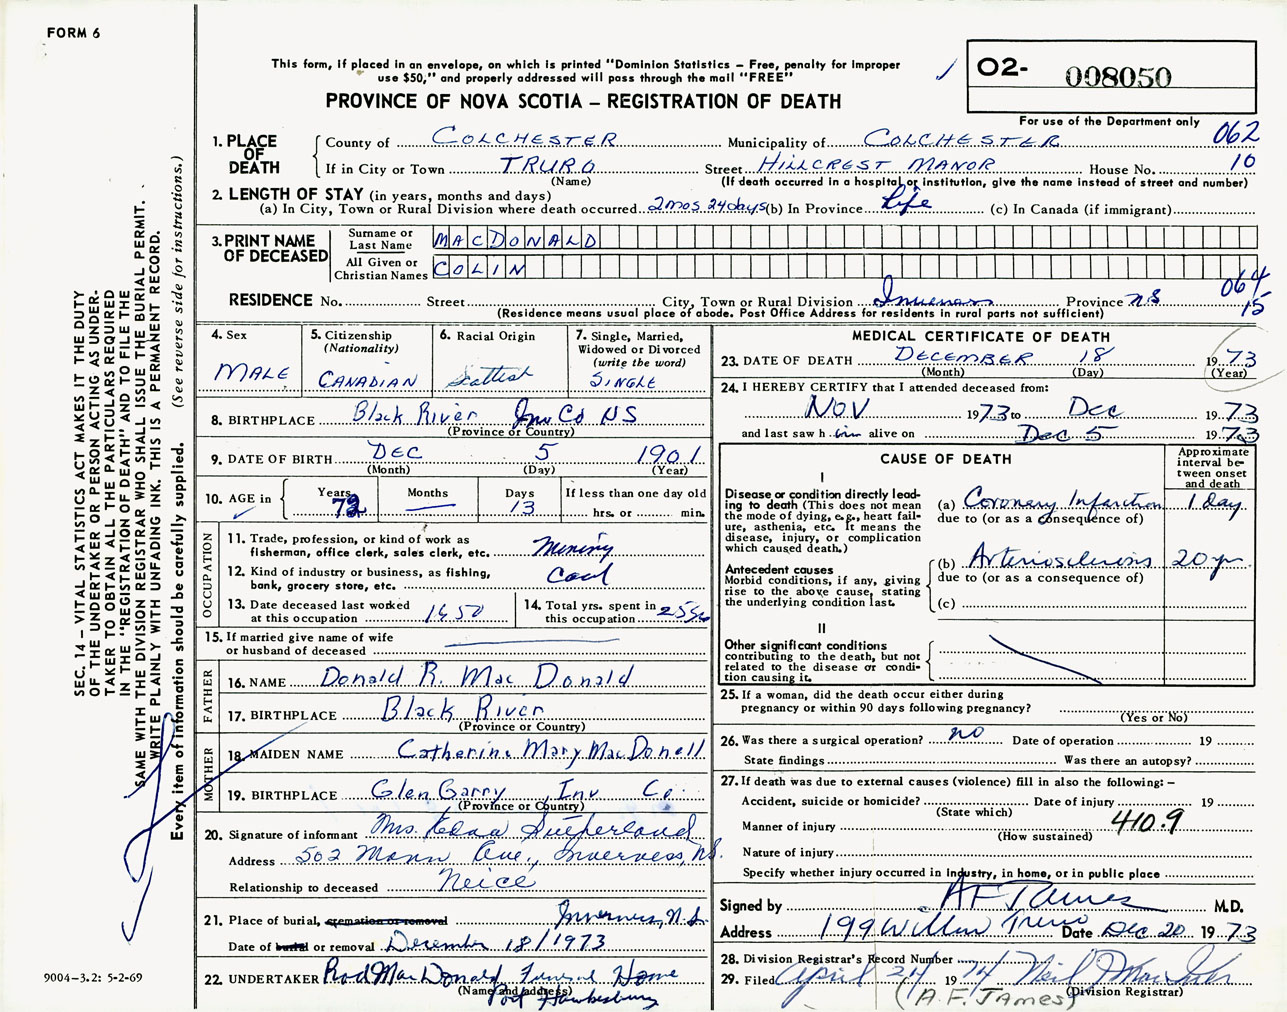 FORM 6
This form, if placed in an envelope, on which is printed "Dominion Statistics – Free, penalty for improper
use $50," and properly addressed will pass through the mail "FREE"
O2- 008050
PROVINCE OF NOVA SCOTIA – REGISTRATION OF DEATH
For use of the Department only
1. PLACE OF DEATH
County of COLCHESTER Municipality of COLCHESTER 062
If in City or Town TRURO Street HILLCREST MANOR House No. 10
(Name) (If death occurred in a hospital or institution, give the name instead of street and number)
2. LENGTH OF STAY (in years, months and days)
(a) In City, Town or Rural Division where death occurred 2 mos 24 days (b) In Province Life (c) In Canada (if immigrant)
3. PRINT NAME OF DECEASED
Surname or Last Name MACDONALD
All Given or Christian Names COLIN
064
RESIDENCE No. Street City, Town or Rural Division Inverness Province N S 15
(Residence means usual place of abode. Post Office Address for residents in rural parts not sufficient)
4. Sex MALE
5. Citizenship (Nationality) CANADIAN
6. Racial Origin Scottish
7. Single, Married, Widowed or Divorced (write the word) SINGLE
8. BIRTHPLACE Black River Inv. Co NS
(Province or Country)
9. DATE OF BIRTH DEC 5 1901
(Month) (Day) (Year)
10. AGE in Years 72 Months — Days 13 If less than one day old hrs. or min.
OCCUPATION
11. Trade, profession, or kind of work as fisherman, office clerk, sales clerk, etc. Mining
12. Kind of industry or business, as fishing, bank, grocery store, etc. Coal
13. Date deceased last worked at this occupation 1950
14. Total yrs. spent in this occupation
15. If married give name of wife or husband of deceased
FATHER
16. NAME Donald R. Mac Donald
17. BIRTHPLACE Black River
(Province or Country)
MOTHER
18. MAIDEN NAME Catherine Mary MacDonell
19. BIRTHPLACE Glen Garry Inv Co
(Province or Country)
20. Signature of informant Mrs. Edna Sutherland
Address 502 Mann Ave., Inverness, N.S.
Relationship to deceased Neice
21. Place of burial, cremation or removal Inverness, N.S.
Date of burial or removal December 18/1973
22. UNDERTAKER Rod MacDonald Funeral Home
(Name and address) Port Hawkesbury
MEDICAL CERTIFICATE OF DEATH
23. DATE OF DEATH DECEMBER 18 1973
(Month) (Day) (Year)
24. I HEREBY CERTIFY that I attended deceased from:
NOV 1973 to Dec 1973
and last saw him alive on Dec 5 1973
CAUSE OF DEATH
Approximate interval between onset and death
I
Disease or condition directly leading to death (This does not mean the mode of dying, e.g., heart failure, asthenia, etc. It means the disease, injury, or complication which caused death.)
(a) Coronary Infarction 1 day
due to (or as a consequence of)
Antecedent causes
Morbid conditions, if any, giving rise to the above cause, stating the underlying condition last.
(b) Arteriosclerosis 20 yr
due to (or as a consequence of)
(c)
II
Other significant conditions
contributing to the death, but not related to the disease or condition causing it.
25. If a woman, did the death occur either during
pregnancy or within 90 days following pregnancy?
(Yes or No)
26. Was there a surgical operation? no Date of operation 19
State findings Was there an autopsy?
27. If death was due to external causes (violence) fill in also the following: –
Accident, suicide or homicide? Date of injury 19
(State which)
Manner of injury 410.9
(How sustained)
Nature of injury
Specify whether injury occurred in industry, in home, or in public place
Signed by A F James M.D.
Address 199 Willow Truro Date Dec 20 1973
28. Division Registrar's Record Number
29. Filed April 24 1974 Neil
(A.F. JAMES) (Division Registrar)
SEC. 14 – VITAL STATISTICS ACT MAKES IT THE DUTY
OF THE UNDERTAKER OR PERSON ACTING AS UNDER-
TAKER TO OBTAIN ALL THE PARTICULARS REQUIRED
IN THE "REGISTRATION OF DEATH" AND TO FILE THE
SAME WITH THE DIVISION REGISTRAR WHO SHALL ISSUE THE BURIAL PERMIT.
WRITE PLAINLY WITH UNFADING INK. THIS IS A PERMANENT RECORD.
Every item of information should be carefully supplied. (See reverse side for instructions.)
9004–3.2: 5-2-69